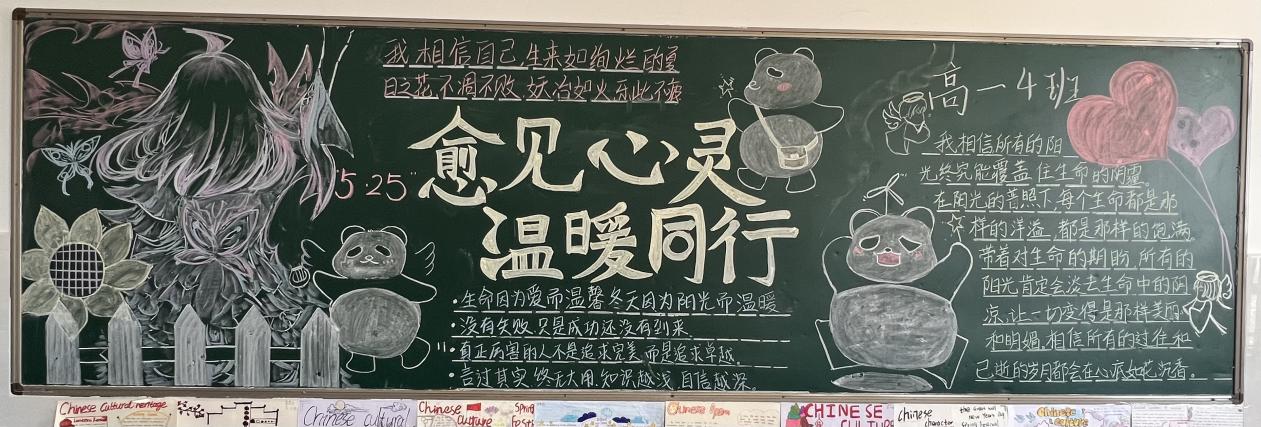 我相信自己,生来如绚烂的夏
日之花,不凋不败,妖冶如火,乐此不
"5 25"
愈见心灵
温暖同行
·生命因为爱而温馨,冬天因为阳光而温暖
·没有失败,只是成功还没有到来.
·真正厉害的人不是追求完美,而是追求卓越.
·言过其实,终无大用.知识越浅,自信越深.
高一4班
我相信所有的阳
光终究能覆盖住生命的阴霾。
在阳光的普照下,每个生命都是那
样的洋溢,都是那样的饱满。
带着对生命的期盼,所有的
阳光肯定会淡去生命中的阴
凉,让一切变得是那样美丽
和明媚.相信所有的过往和
已逝的岁月都会在心底如花沉香。
Chinese Cultural heritage
Chinese cultural
Chinese culture
Spring
Festi
Chinese
CHINESE
CULTURE
chinese
character
the Great wall
new Year's
Spring Festival
Chinese
culture